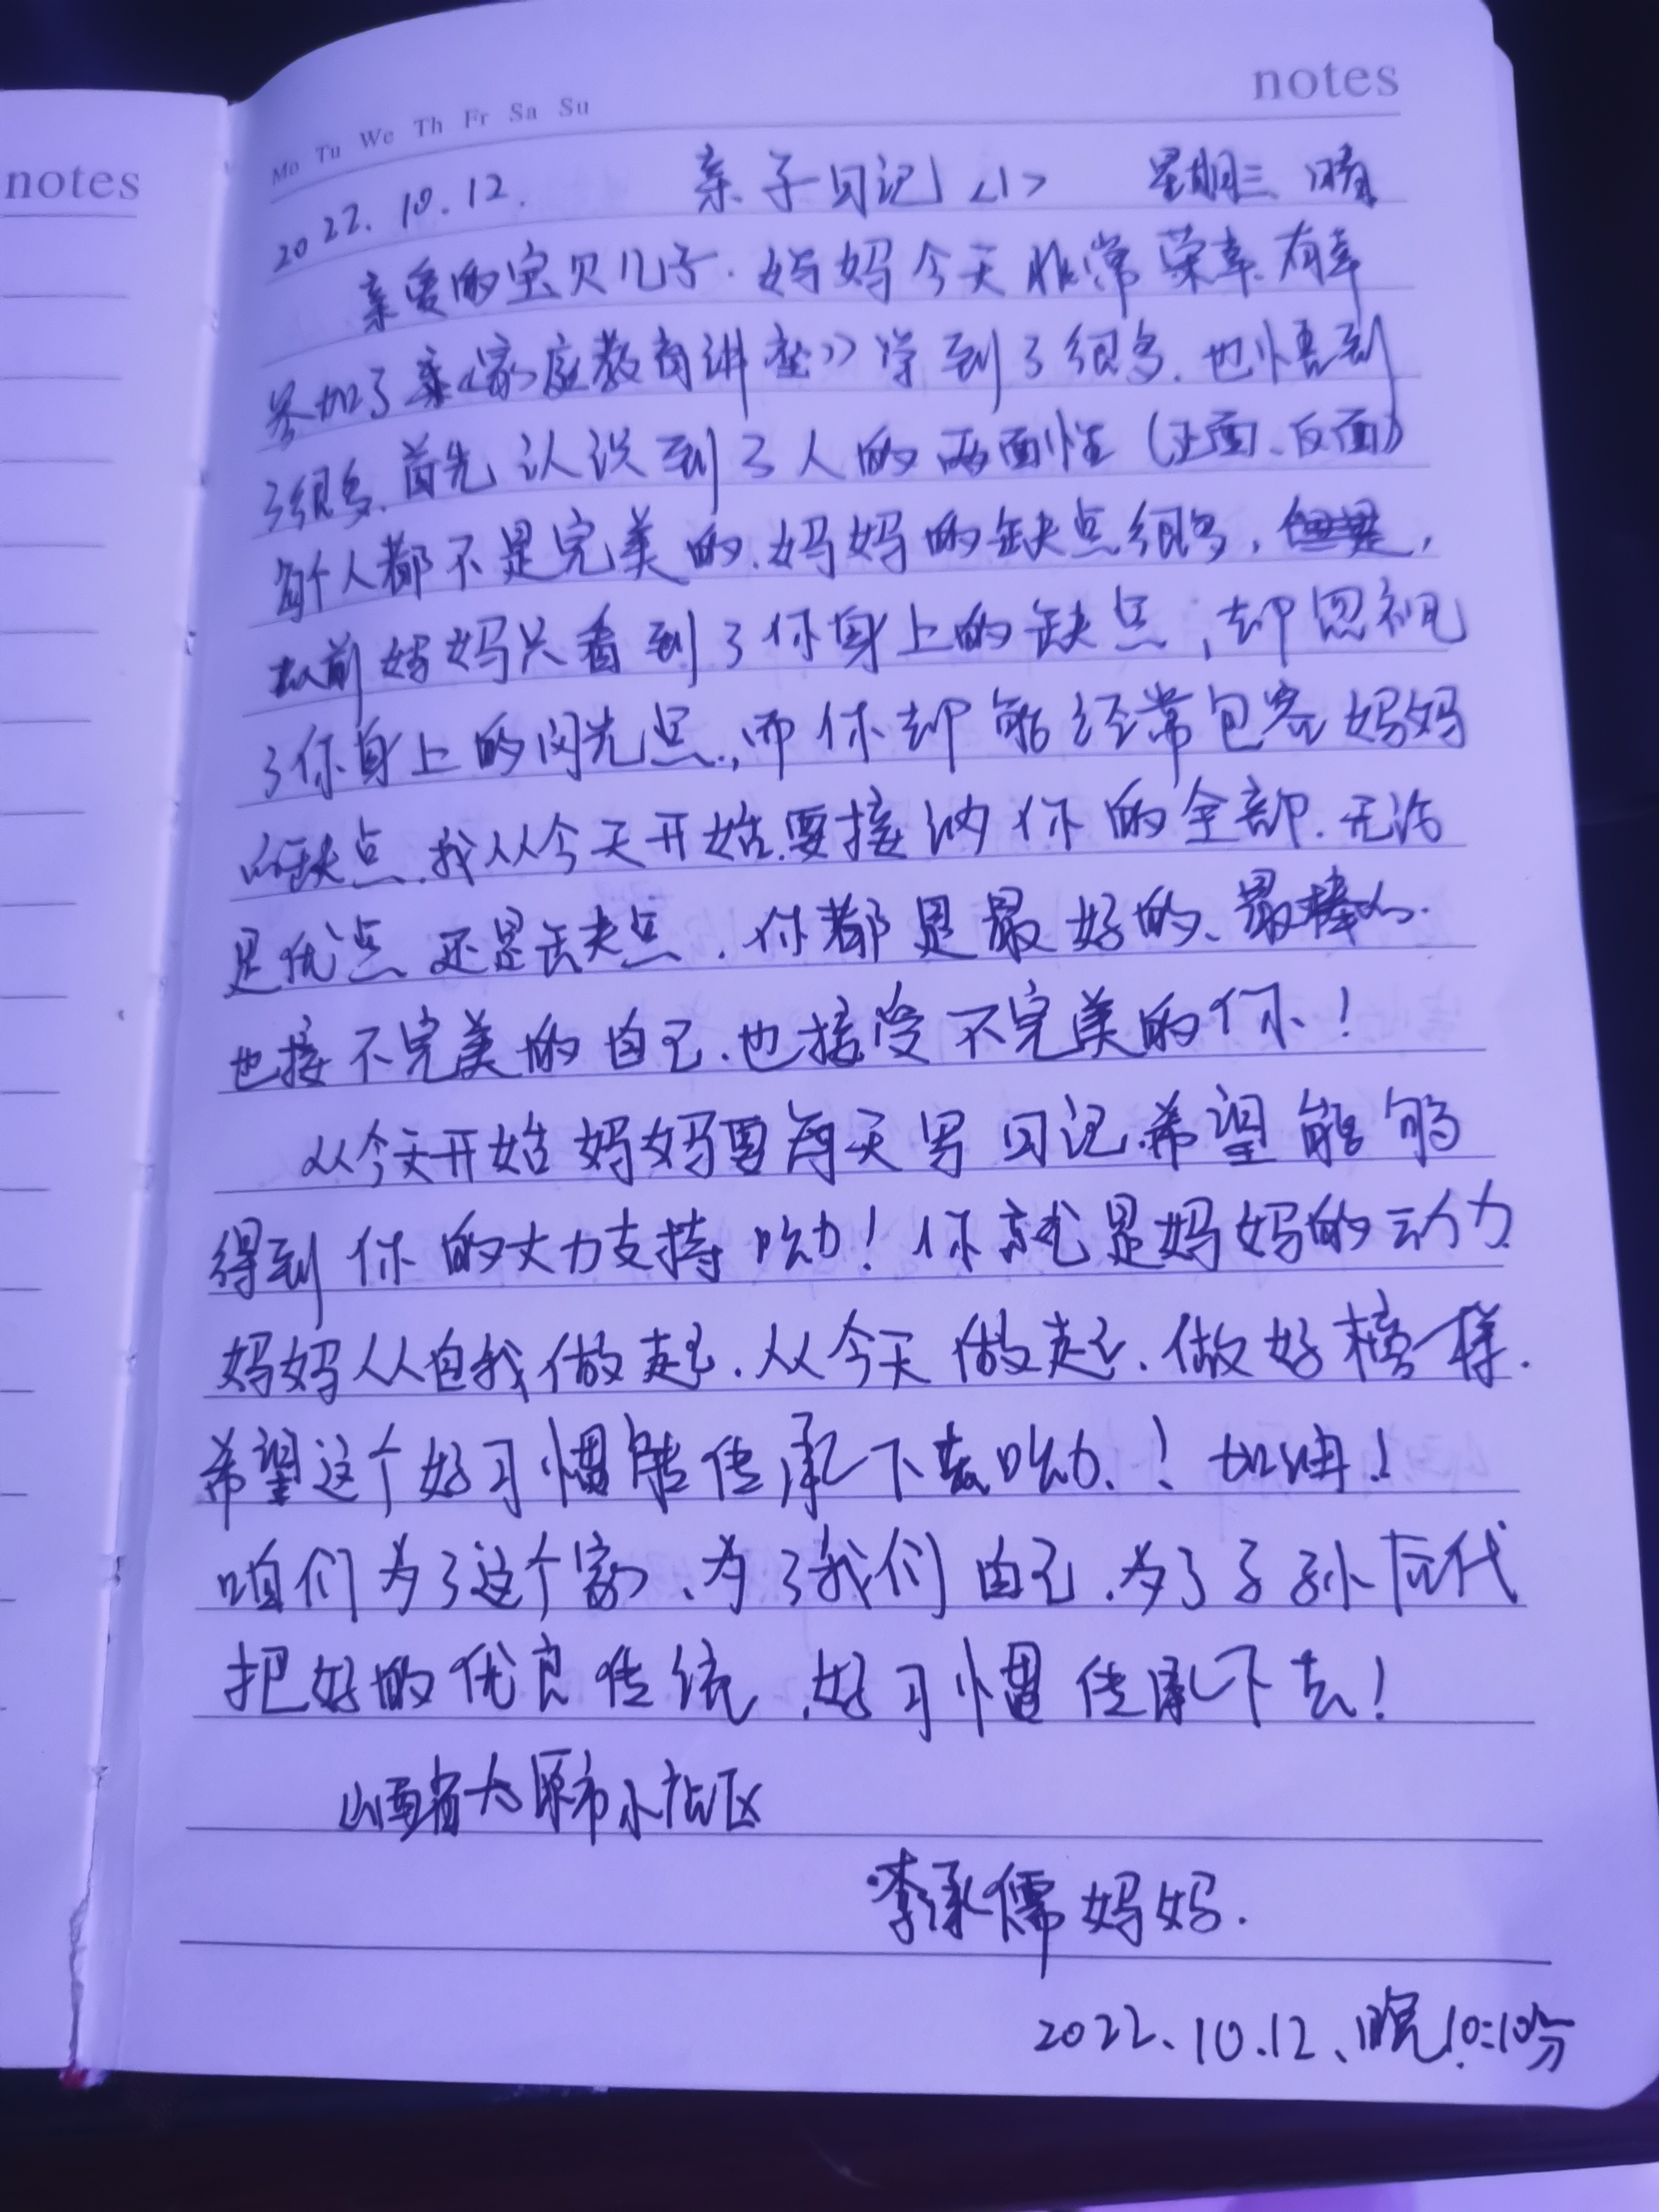 notes
notes
Mo Tu We Th Fr Sa Su
2022.10.12. 亲子日记<1> 星期三 晴
亲爱的宝贝儿子.妈妈今天非常荣幸.有幸
参加了《家庭教育讲座》学到了很多.也悟到
了很多.首先认识到了人的两面性(正面、反面)
每个人都不是完美的.妈妈的缺点很多,
以前妈妈只看到了你身上的缺点,却忽视
了你身上的闪光点.,而你却能经常包容妈妈
的缺点.我从今天开始.要接纳你的全部.无论
是优点还是缺点.你都是最好的、最棒的.
也接不完美的自己.也接受不完美的你!
从今天开始妈妈要每天写日记.希望能够
得到你的大力支持呦!你就是妈妈的动力
妈妈从自我做起.从今天做起、做好榜样.
希望这个好习惯能传承下去呦.!加油!
咱们为了这个家、为了我们自己.为了子孙后代
把好的优良传统.好习惯传承下去!
山西省太原市小店区
李承儒妈妈.
2022、10.12、晚10:10分